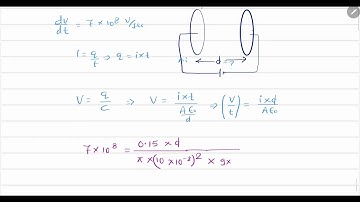 dV/dt = 7 × 10⁸ V/sec
I = q/t ⇒ q = i×t
d
V = q/C ⇒ V = i×t / (Aε₀/d) ⇒ (V/t) = i×d / Aε₀
7 × 10⁸ = 0.15 × d / π × (10 × 10⁻²)² × 9×